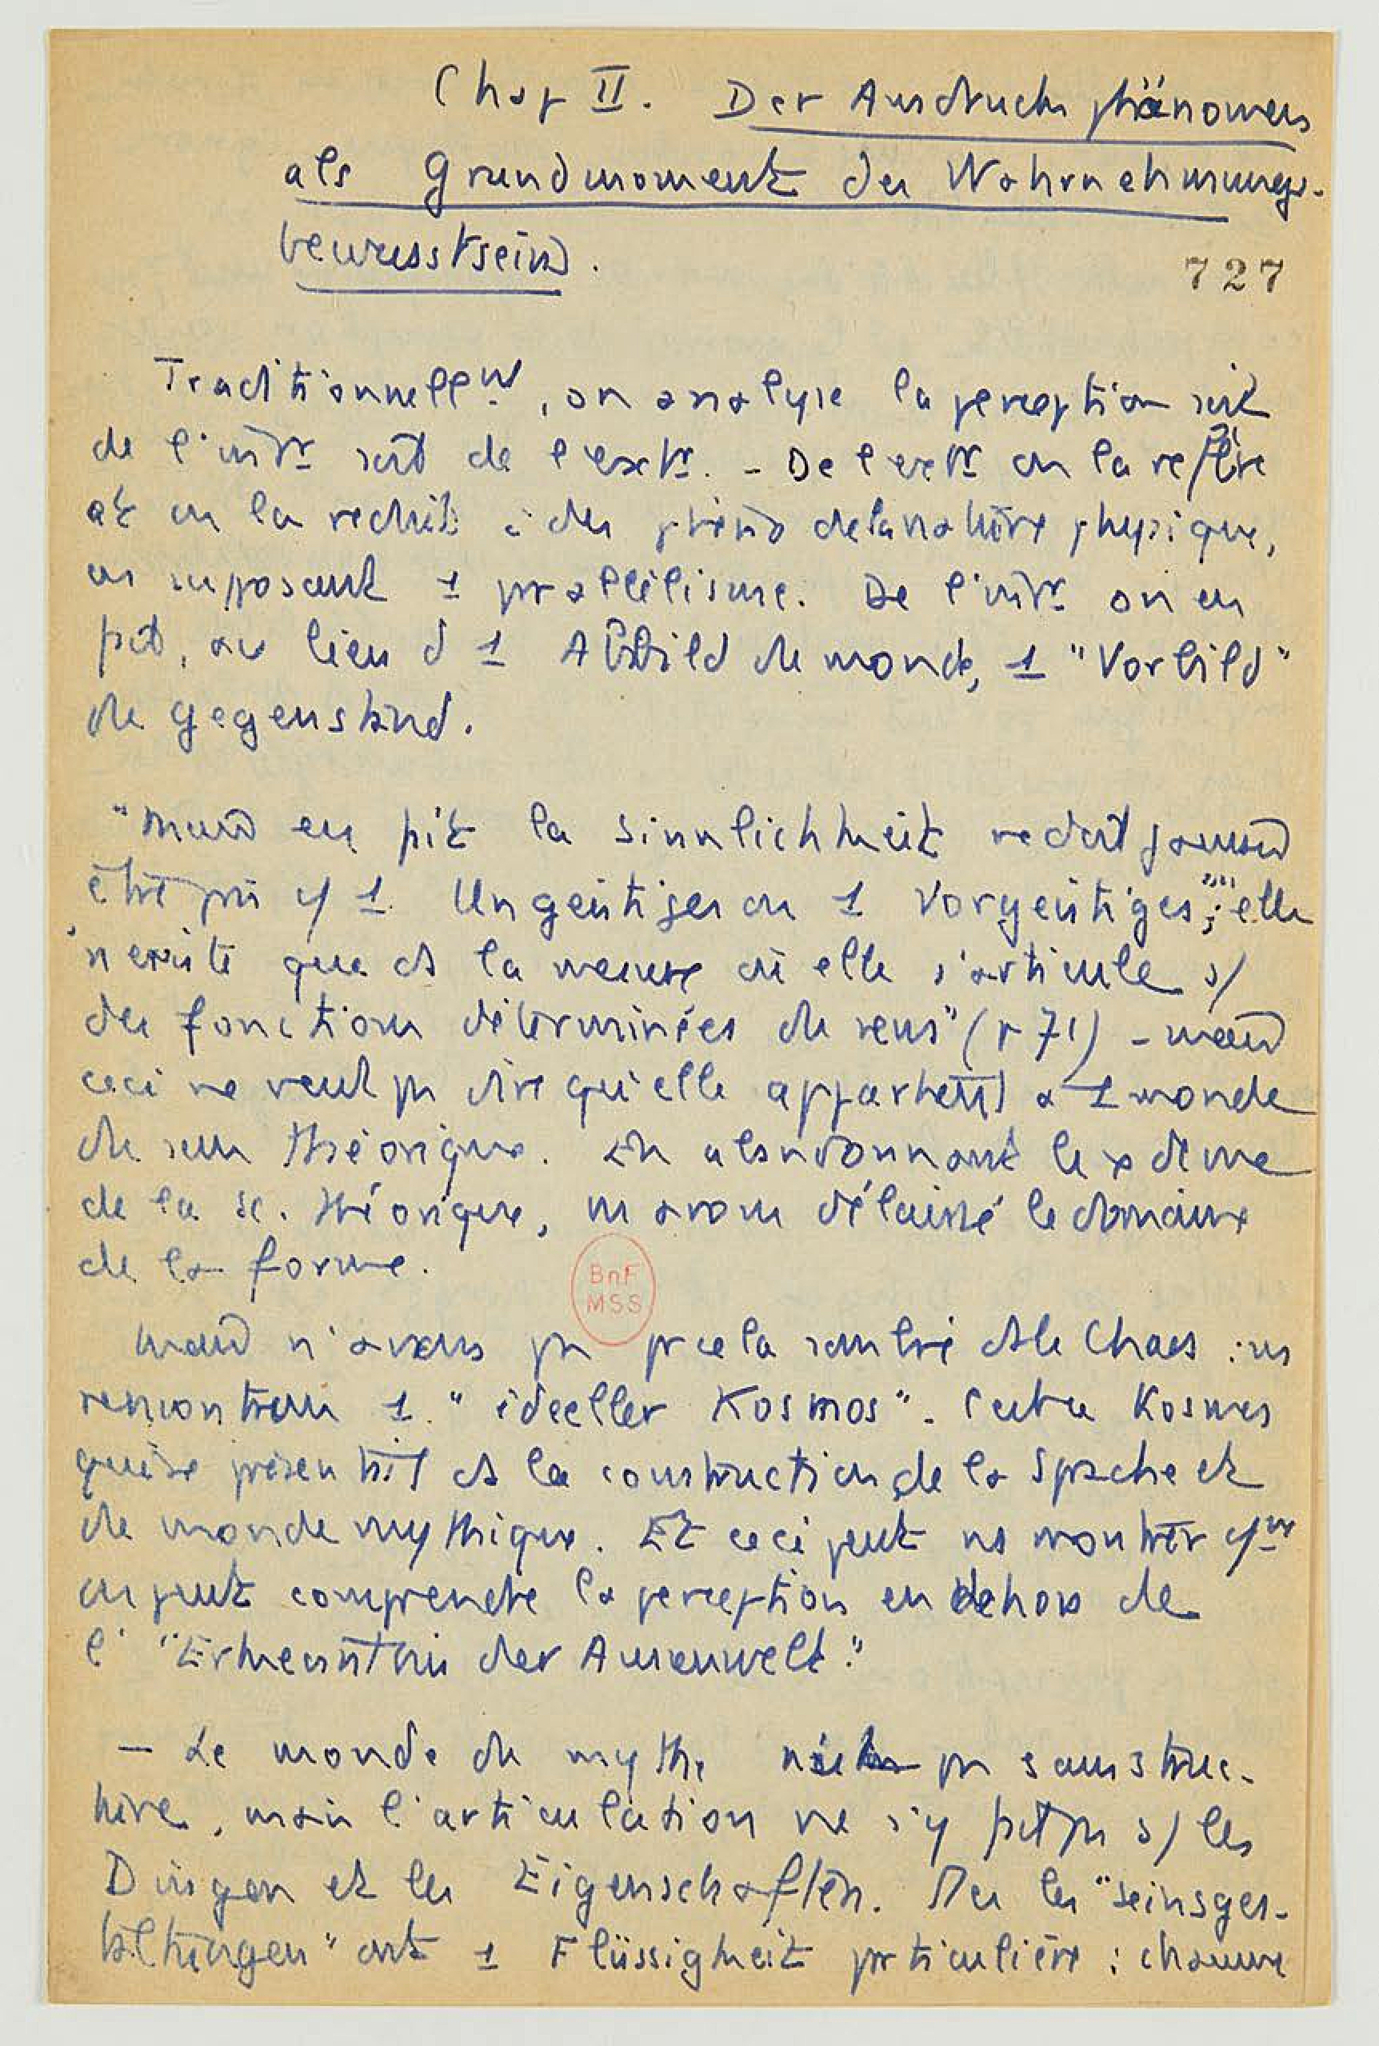 Chap II. Der Ausdrucks phänomens
als Grundmoment des Wahrnehmungs-
bewusstseins.
727
Traditionnellt, on analyse la perception soit
de l'intr soit de l'extr. - De l'extr on la
et on la réduit à des phéno de la nature physique,
en supposant 1 prallélisme. De l'intr on en
fait, au lieu d 1 Abbild du monde, 1 "Vorbild"
du Gegenstand.
"Mais en fait la Sinnlichkeit ne doit jamais
être 1 Ungeistiges ou 1 Vorgeistiges; elle
n'existe que ds la mesure où elle s'articule s/
des fonctions déterminées du sens" (p 71) - mais
ceci ne veut pas dire qu'elle appartient à 1 monde
du sens théorique. En abandonnant le
de la sc. théorique, ns avons délaissé le domaine
de la forme.
BnF
MSS
mais n'avons pas pr cela sombré ds le Chaos : ns
rencontrons 1 "ideeller Kosmos". C'est ce Kosmos
qui se présentait ds la construction de la Sprache et
du monde mythique. Et ceci peut ns montrer
on peut comprendre la perception en dehors de
l' "Erkenntnis der Aussenwelt."
- Le monde du mythe pas sans struc-
ture, mais l'articulation ne s'y fait pas s/ les
Dingen et les Eigenschaften. les "seinsges-
taltungen" ont 1 Flüssigkeit prticulière : chacune